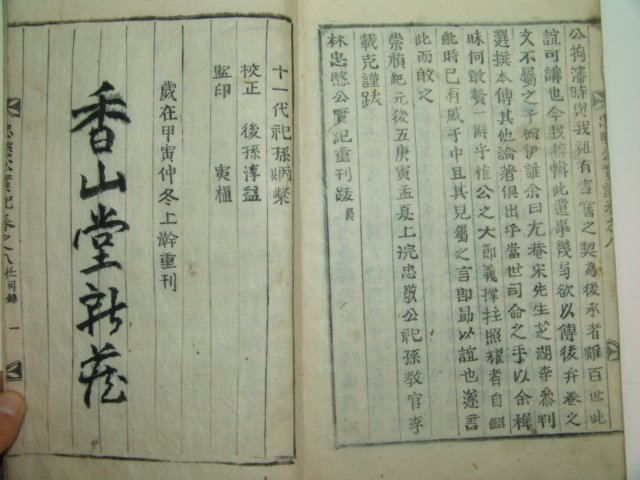 公拘瀋時與我祖有雪窖之契為後承者雖百世此
誼可講也今我梓輯此遺事幾与欲以傳後弁卷之
文不屬之子而伊誰余曰尤菴宋先生芝湖李參判
選撰本傳其他論著俱出乎當世司命之手以余稚
昧何敢贅一辭乎惟公之大節義撑拄照耀者自齠
齔時已有感于中且其見屬之言即勗以誼也遂書
此而敢之
崇禎紀元後五庚寅孟夏上浣忠敬公祀孫教官李
載克謹跋
林忠愍公實記重刊跋 終
十一代祀孫炳榮
校正 後孫淳益
監印 寅植
歲在甲寅仲冬上澣重刊
香山堂新藏
忠愍公實記卷之八 任司錄 一